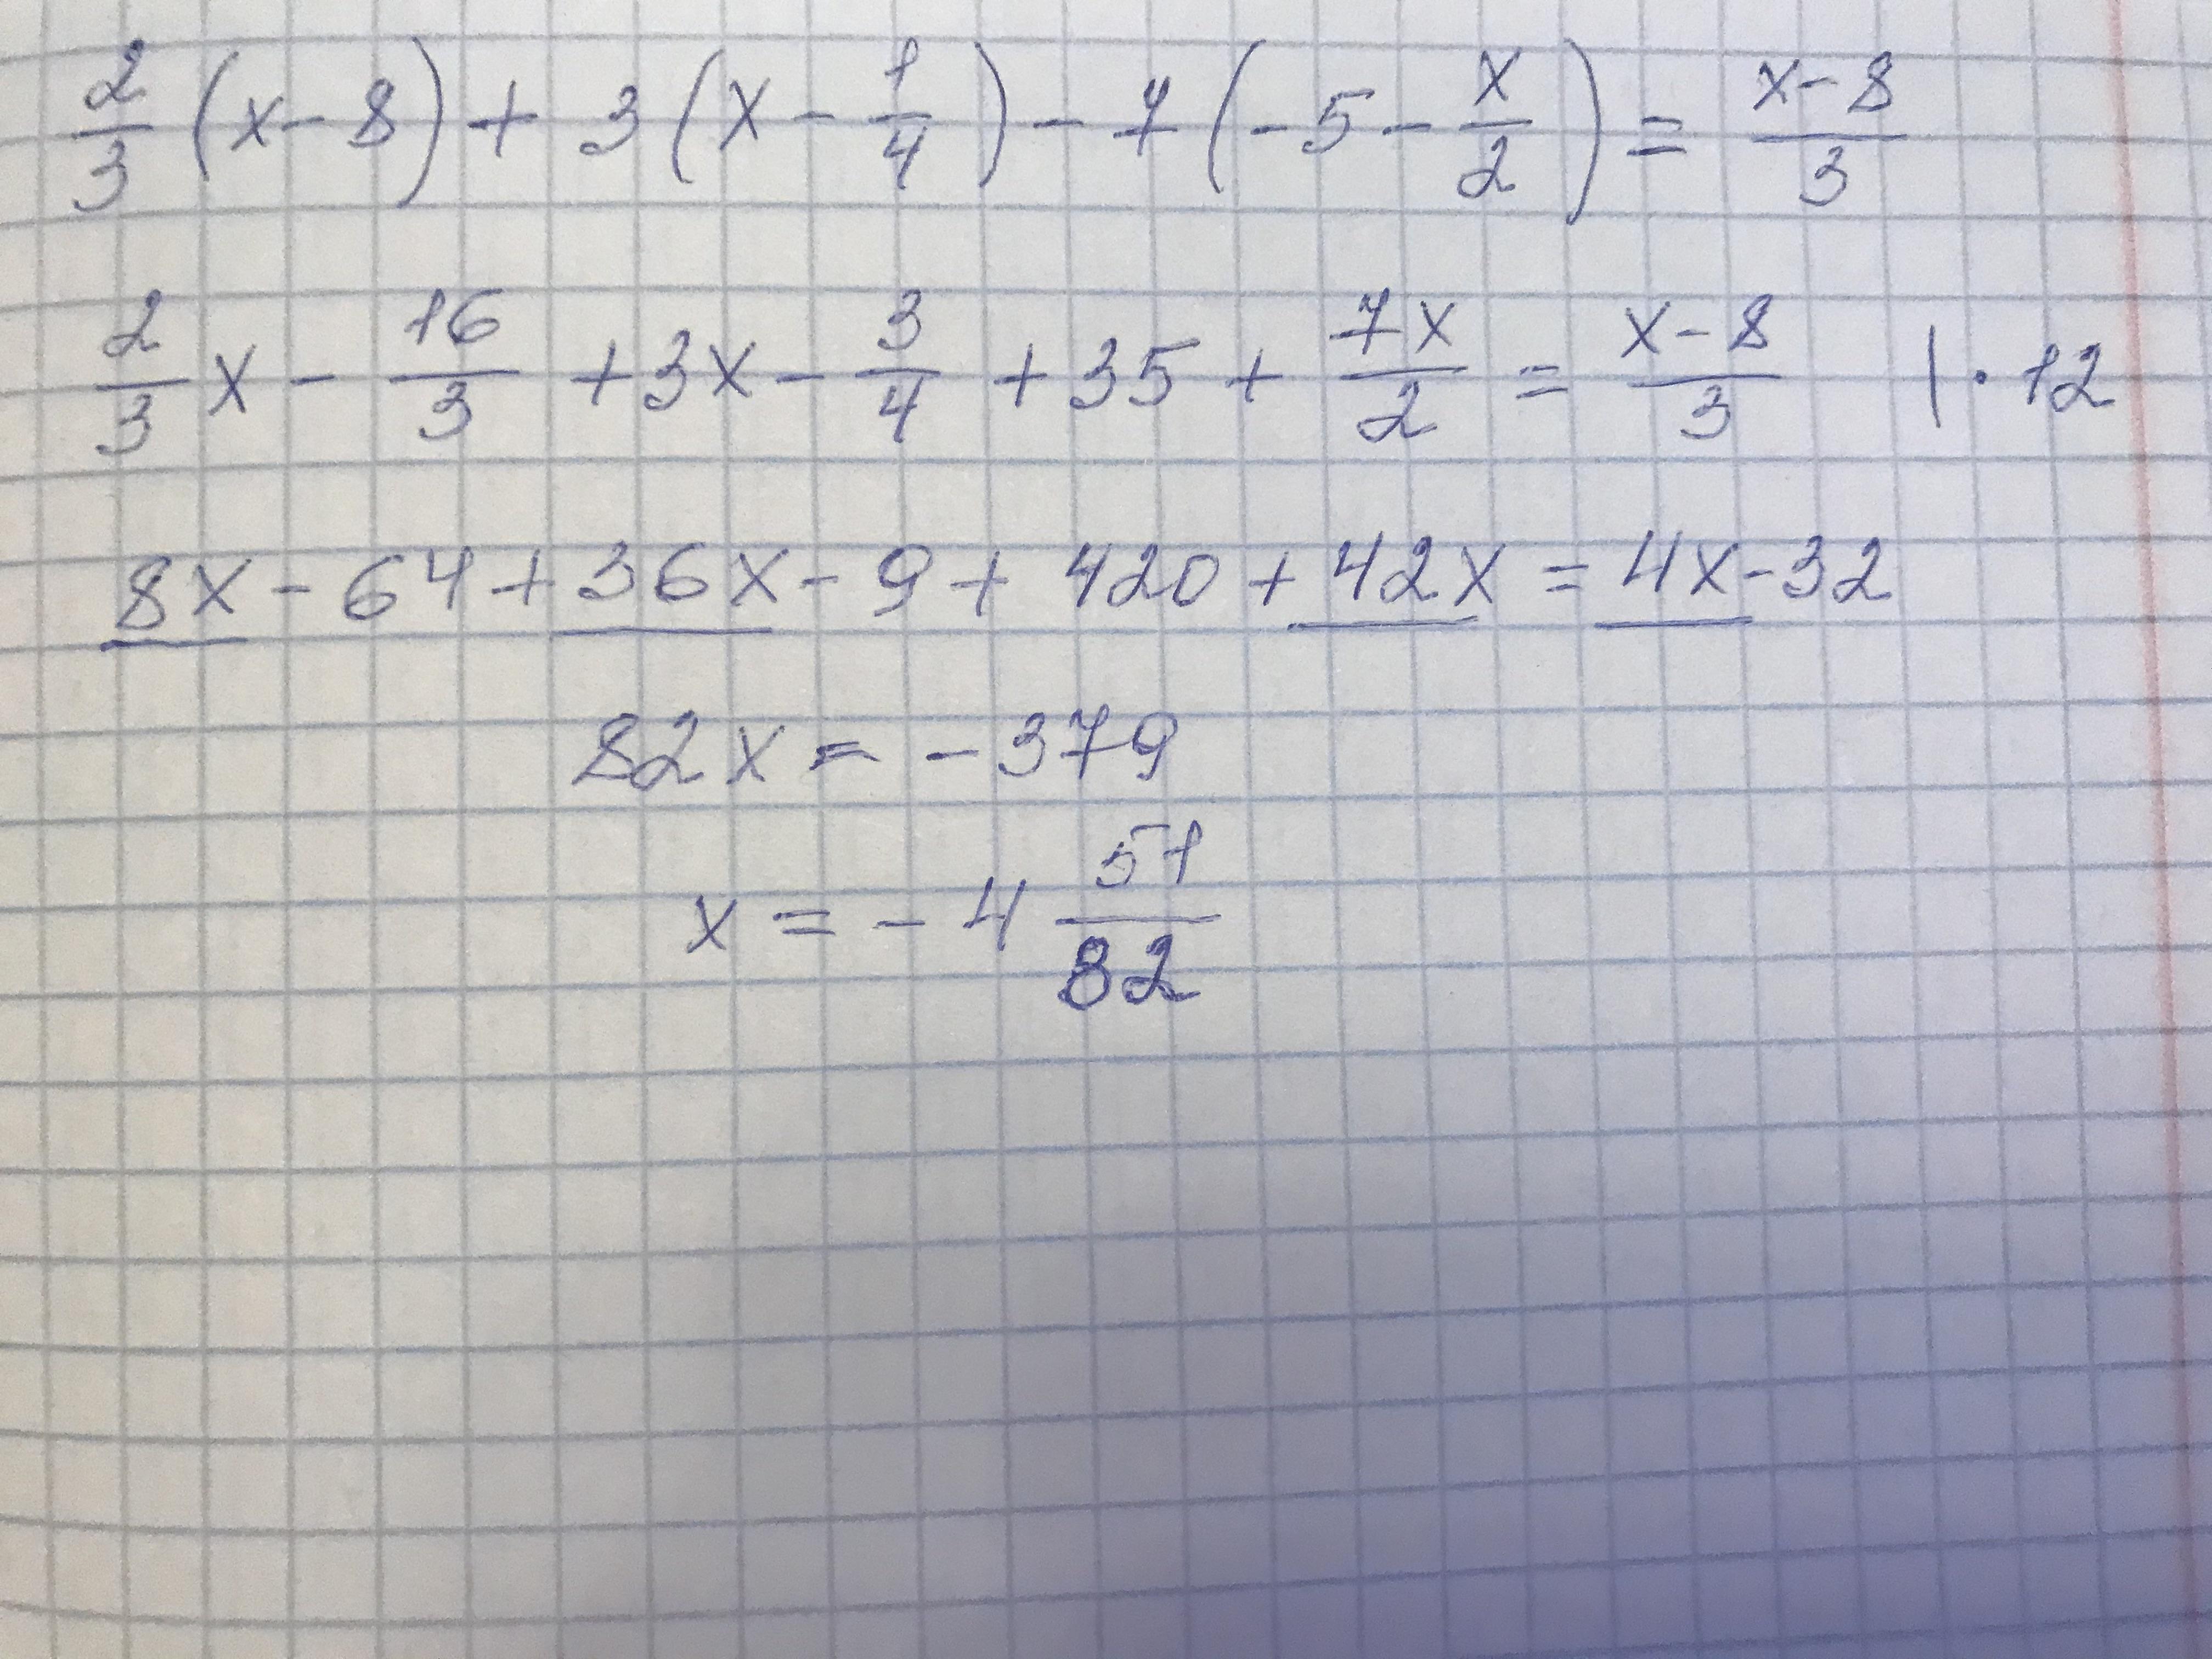 2/3 (x - 8) + 3 (x - 1/4) - 7 (-5 - x/2) = (x-8)/3
2/3 x - 16/3 + 3x - 3/4 + 35 + 7x/2 = (x-8)/3 | · 12
8x - 64 + 36x - 9 + 420 + 42x = 4x - 32
82x = - 379
x = - 4 51/82